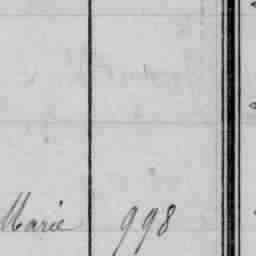 Marie 998